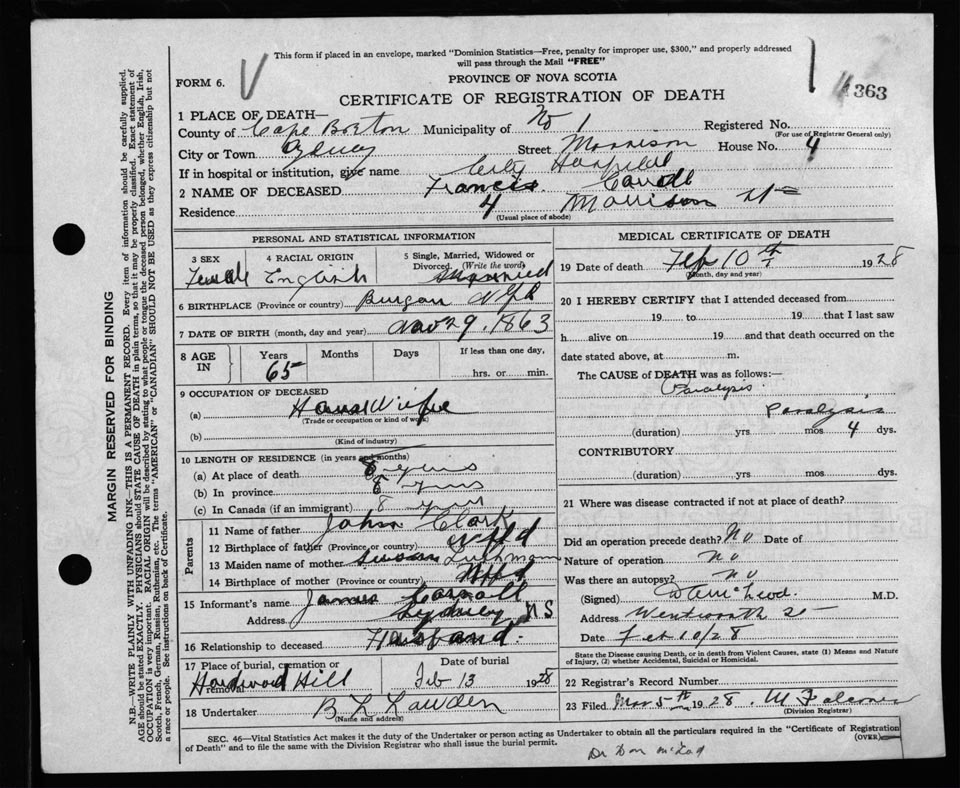 This form if placed in an envelope, marked "Dominion Statistics—Free, penalty for improper use, $300," and properly addressed
will pass through the Mail "FREE"
FORM 6.
PROVINCE OF NOVA SCOTIA
363
CERTIFICATE OF REGISTRATION OF DEATH
1 PLACE OF DEATH—
County of Cape Breton Municipality of No 1 Registered No.
(For use of Registrar General only)
City or Town Street Morrison House No. 4
If in hospital or institution, give name City Hospital
2 NAME OF DECEASED Francis
Residence 4 Morrison St
(Usual place of abode)
PERSONAL AND STATISTICAL INFORMATION
3 SEX 4 RACIAL ORIGIN 5 Single, Married, Widowed or
Divorced. (Write the word)
Female English Married
6 BIRTHPLACE (Province or country) Nfld
7 DATE OF BIRTH (month, day and year) Nov 29, 1863
8 AGE IN Years Months Days If less than one day,
65 hrs. or min.
9 OCCUPATION OF DECEASED
(a) House Wife
(Trade or occupation or kind of work)
(b)
(Kind of industry)
10 LENGTH OF RESIDENCE (in years and months)
(a) At place of death 8 years
(b) In province 8 years
(c) In Canada (if an immigrant) 8 years
Parents
11 Name of father John Clark
12 Birthplace of father (Province or country) Nfld
13 Maiden name of mother Susan
14 Birthplace of mother (Province or country) Nfld
15 Informant's name James
Address Sydney NS
16 Relationship to deceased Husband.
17 Place of burial, cremation or removal Date of burial
Hardwood Hill Feb 13 1928
18 Undertaker B L
(Name and address)
MEDICAL CERTIFICATE OF DEATH
19 Date of death Feb 10th 1928
(Month, day and year)
20 I HEREBY CERTIFY that I attended deceased from
19 to 19 that I last saw
h alive on 19 and that death occurred on the
date stated above, at m.
The CAUSE of DEATH was as follows:—
Paralysis
Paralysis
(duration) yrs mos 4 dys.
CONTRIBUTORY
(duration) yrs mos dys.
21 Where was disease contracted if not at place of death?
Did an operation precede death? No Date of
Nature of operation no
Was there an autopsy? no
(Signed) M.D.
Address Wentworth St
Date Feb 10/28
State the Disease causing Death, or in death from Violent Causes, state (1) Means and Nature
of Injury, (2) whether Accidental, Suicidal or Homicidal.
22 Registrar's Record Number
23 Filed Mar 5th 1928.
(Division Registrar)
SEC. 46—Vital Statistics Act makes it the duty of the Undertaker or person acting as Undertaker to obtain all the particulars required in the "Certificate of Registration
of Death" and to file the same with the Division Registrar who shall issue the burial permit.
(OVER)
MARGIN RESERVED FOR BINDING
N.B.—WRITE PLAINLY WITH UNFADING INK—THIS IS A PERMANENT RECORD. Every item of information should be carefully supplied.
AGE should be stated EXACTLY. PHYSICIANS should STATE CAUSE OF DEATH in plain terms, so that it may be properly classified. Exact statement of
OCCUPATION is very important. RACIAL ORIGIN will be described by stating to what people or tongue the deceased person belonged, whether English, Irish,
Scotch, French, German, Russian, Ruthenian, etc. The terms "AMERICAN" or "CANADIAN" SHOULD NOT BE USED as they express citizenship but not
a race or people. See instructions on back of Certificate.